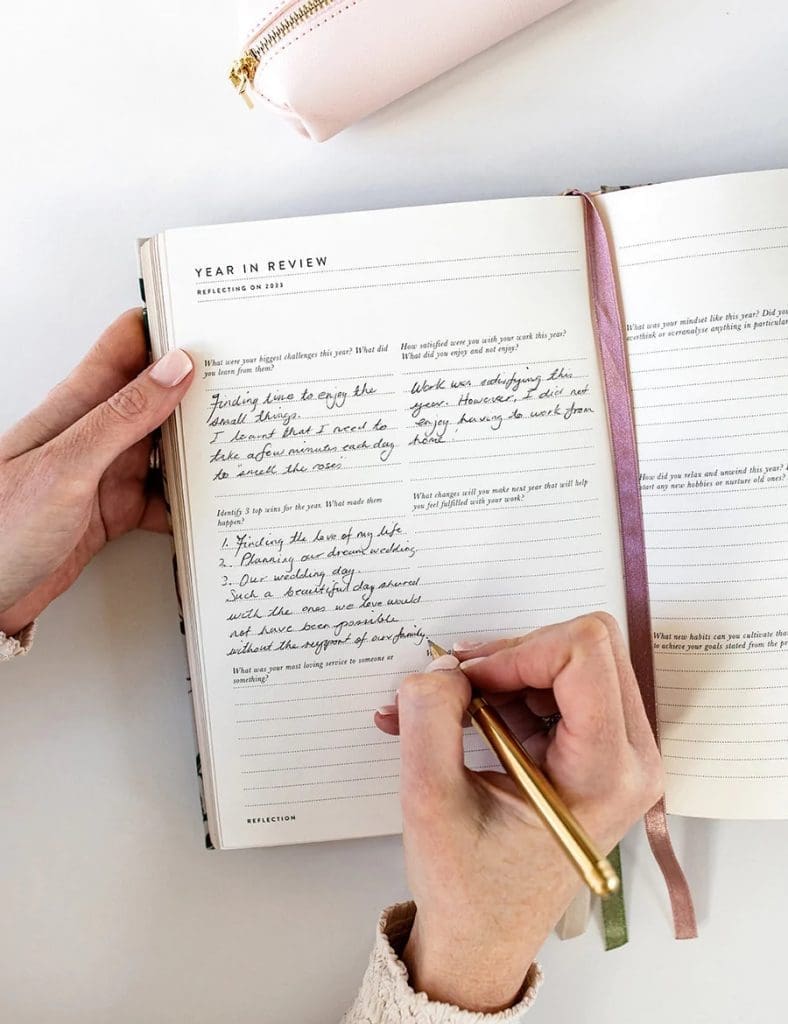 YEAR IN REVIEW
REFLECTING ON 2023
What were your biggest challenges this year? What did
you learn from them?
Finding time to enjoy the
small things.
I learnt that I need to
take a few minutes each day
to "smell the roses"
How satisfied were you with your work this year?
What did you enjoy and not enjoy?
Work was satisfying this
year. However, I did not
enjoy having to work from
home.
Identify 3 top wins for the year. What made them
happen?
1. Finding the love of my life.
2. Planning our dream wedding
3. Our wedding day.
Such a beautiful day shared
with the ones we love would
not have been possible
without the support of our family.
What changes will you make next year that will help
you feel fulfilled with your work?
What was your most loving service to someone or
something?
REFLECTION
What was your mindset like this year? Did you
overthink or overanalyse anything in particular
How did you relax and unwind this year?
start any new hobbies or nurture old ones?
What new habits can you cultivate that
to achieve your goals stated from the